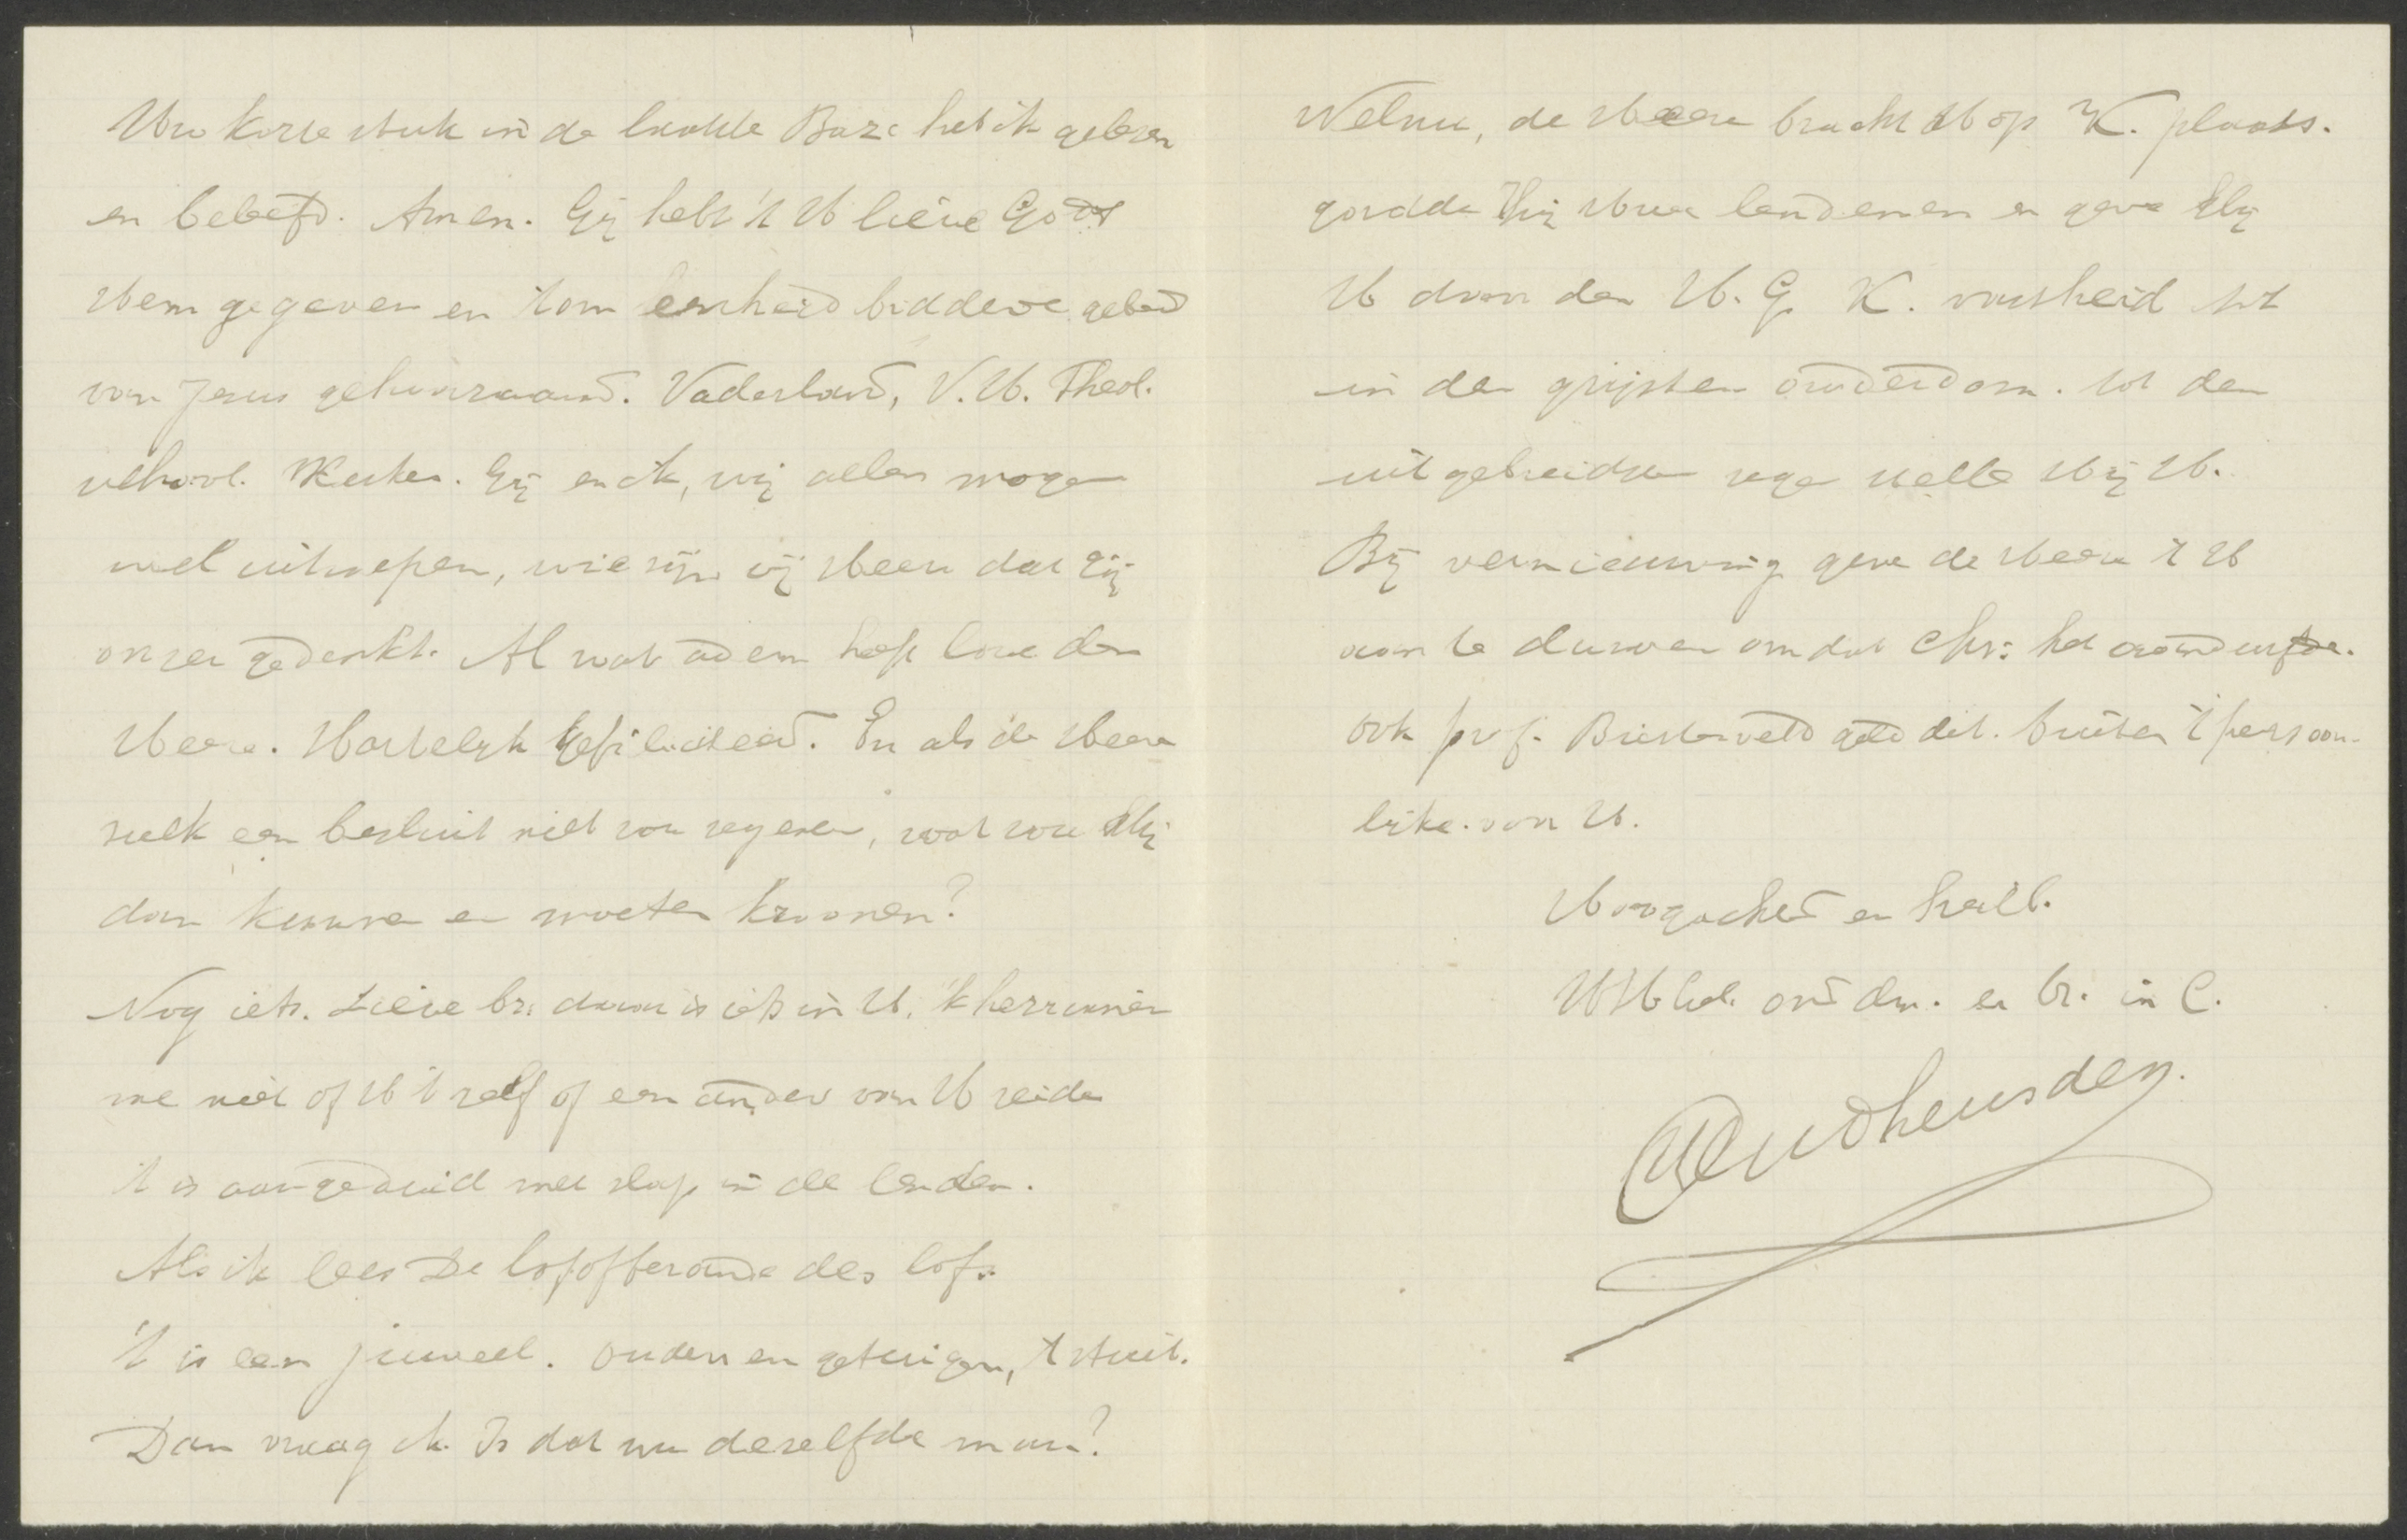 Uw korte stuk in de laatste Baz: heb ik gelezen
en beleefd. Amen. Gij hebt 't U lieve God
Hem gegeven en tom eenheid biddere gebed
van Jesus gehoorzaamd. Vaderland, V.U. Theol.
school. Kerken. Gij en ik, wij allen mogen
wel uitroepen, wie zijn wij Heere dat Gij
onzer gedenkt. Al wat adem heeft love den
Heere. Hartelijk gefeliciteerd. En als de Heere
zulk een besluit niet zou zegenen, wat zou Hij
dan kunnen en moeten kroonen?
Nog iets. Lieve br: daar is iets in U. 'k herinner
me niet of U 't zelf of een ander van U zeide
't is aangeduid met slap in de lenden.
Als ik lees De lofofferande des lofs
't is een juweel. ouden en getuigen, 't stuit.
Dan vraag ik. Is dat nu dezelfde man?
Welnu, de Heere bracht U op K. plaats.
gordde Hij Uwe lendenen en geve Hij
U door den H. G. K. vastheid tot
in den grijsten ouderdom. tot den
uitgebreidsten zegen stelle Hij U.
Bij vernieuwing geve de Heere 't U
aan te durven omdat Chr: het aandurfde.
Ook prof. Biesterveld geld dit. buiten 't persoon-
lijke van U.
Hoogachtend en heilb.
UWlied. oud dn. en br. in C.
Oudheusden.